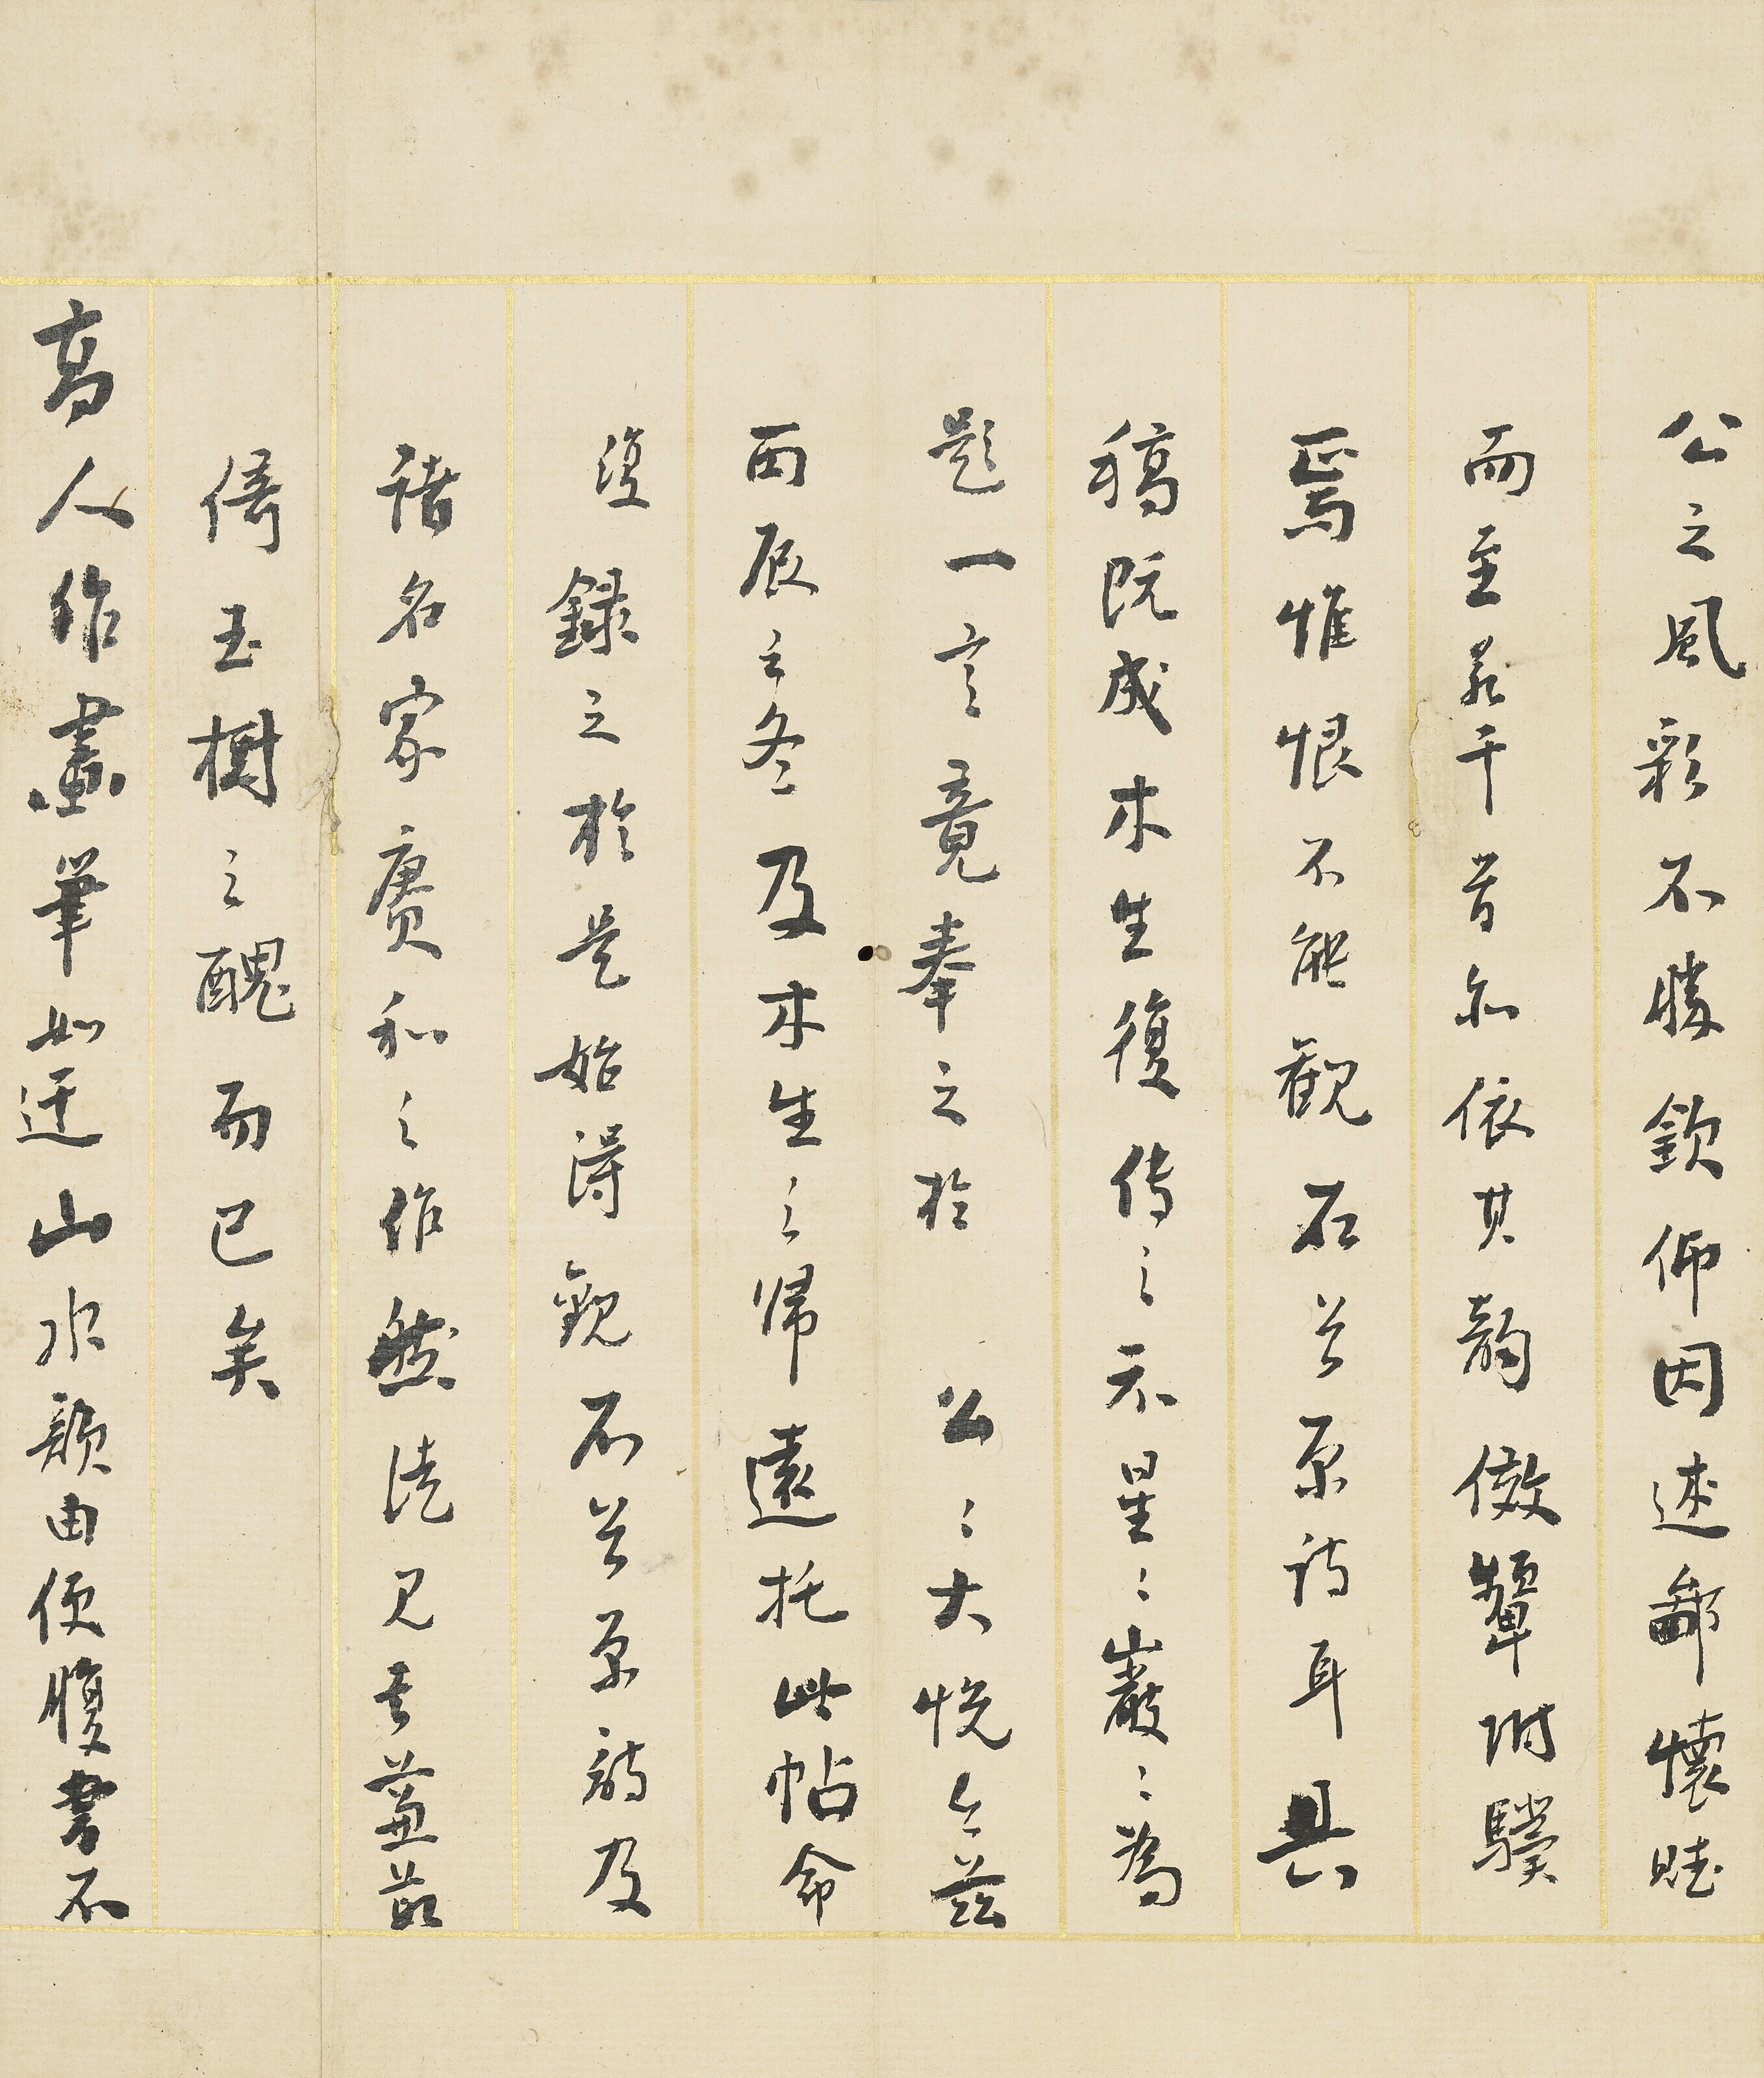 公之風彩不勝欽仰因述鄙懷賦
而至若干首亦依其韵傚顰附驥
焉惟恨不能観石芝原詩耳具
稿既成木生復傳之示星〻巖〻為
題一言竟奉之於 公〻大悦今茲
丙辰之冬及木生之帰遠托此帖命
復録之於是始得観石芝原詩及
諸名家賡和之作然徒見其蒹葭
倚玉樹之醜而已矣
高人作畫筆如迂山水類由便腹書不